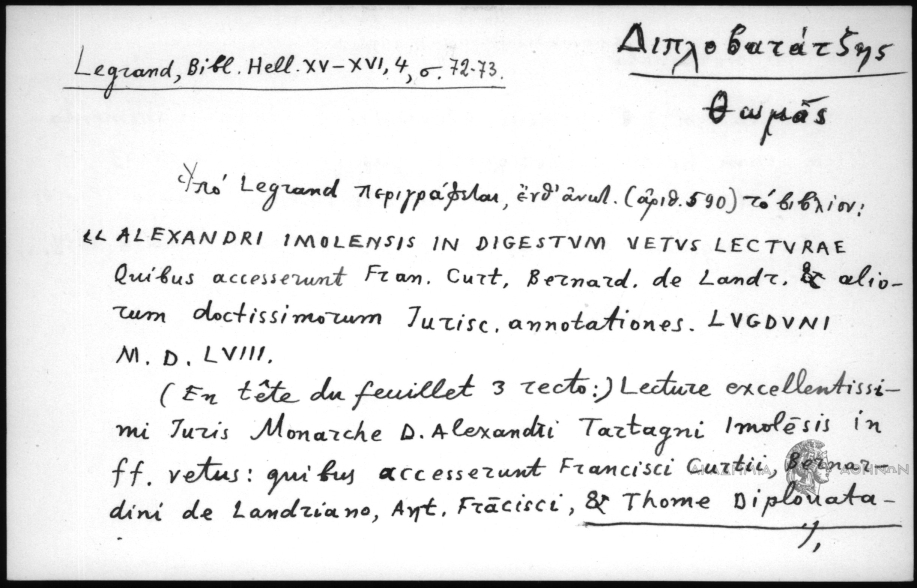 Legrand, Bibl. Hell. XV-XVI, 4, σ. 72-73.
Διπλοβατάτζης
Θωμᾶς
Ὑπό Legrand περιγράφεται, ἔνθ' ἀνωτ. (ἀριθ. 590) τό βιβλίον:
« ALEXANDRI IMOLENSIS IN DIGESTVM VETVS LECTVRAE
Quibus accesserunt Fran. Curt, Bernard. de Landr. & alio-
rum doctissimorum Jurisc. annotationes. LVGDVNI
M. D. LVIII.
(En tête du feuillet 3 recto:) Lecture excellentissi-
mi Juris Monarche D. Alexandri Tartagni Imolēsis in
ff. vetus: quibus accesserunt Francisci Curtii, Bernar-
ΑΚΑΔΗΜΙΑ ΑΘΗΝΩΝ
dini de Landriano, Ant. Frācisci, & Thome Diplouata-